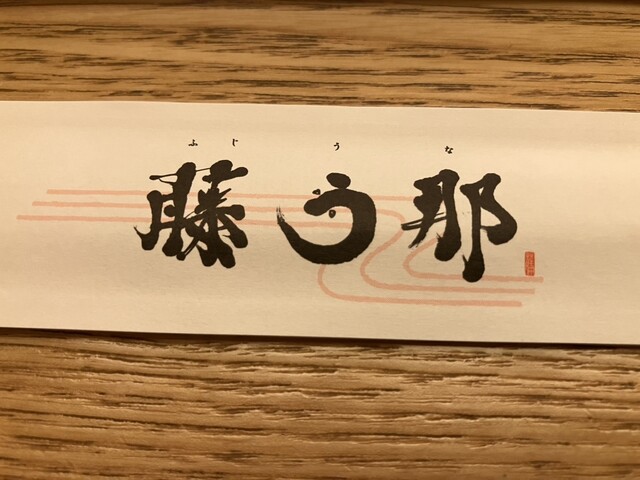 ふじ う な
藤う那